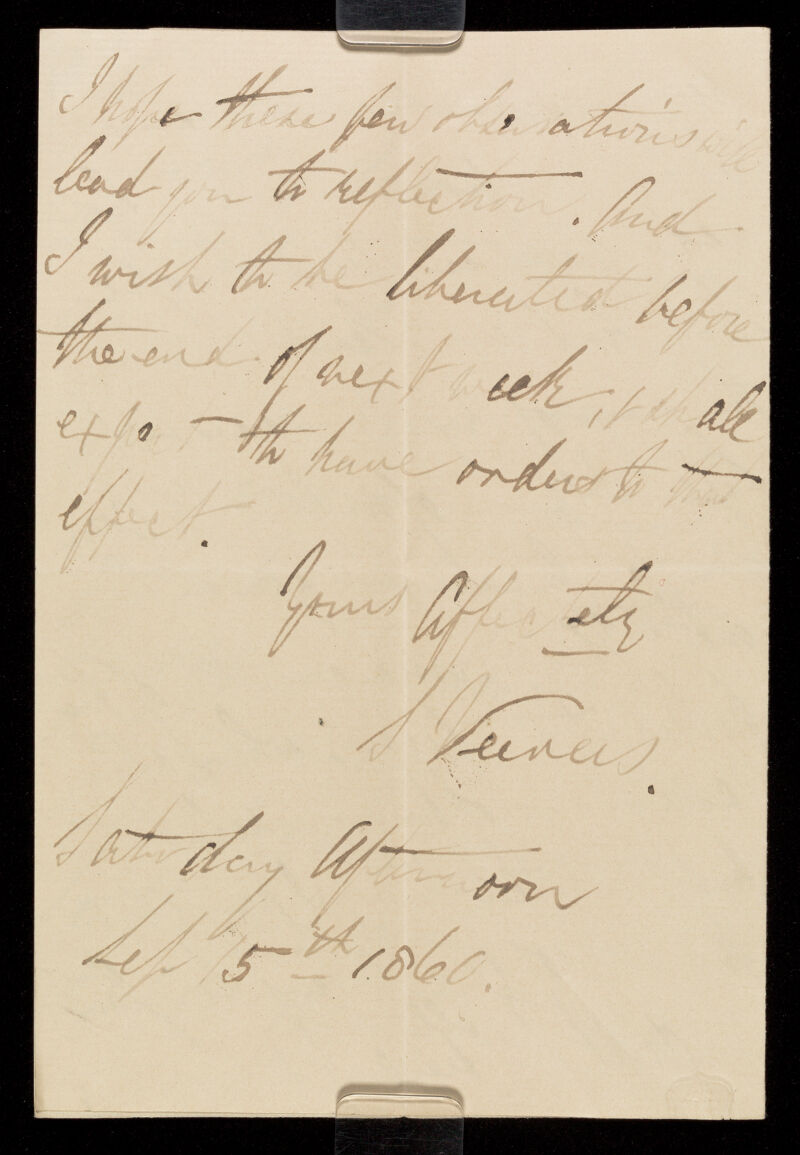 I hope these few observations will
lead you to reflection. And
I wish to be liberated before
the end of next week, & shall
expect to have orders to that
effect.
Yours Affectely
S Veevers.
Saturday Afternoon
Sep 15th 1860.